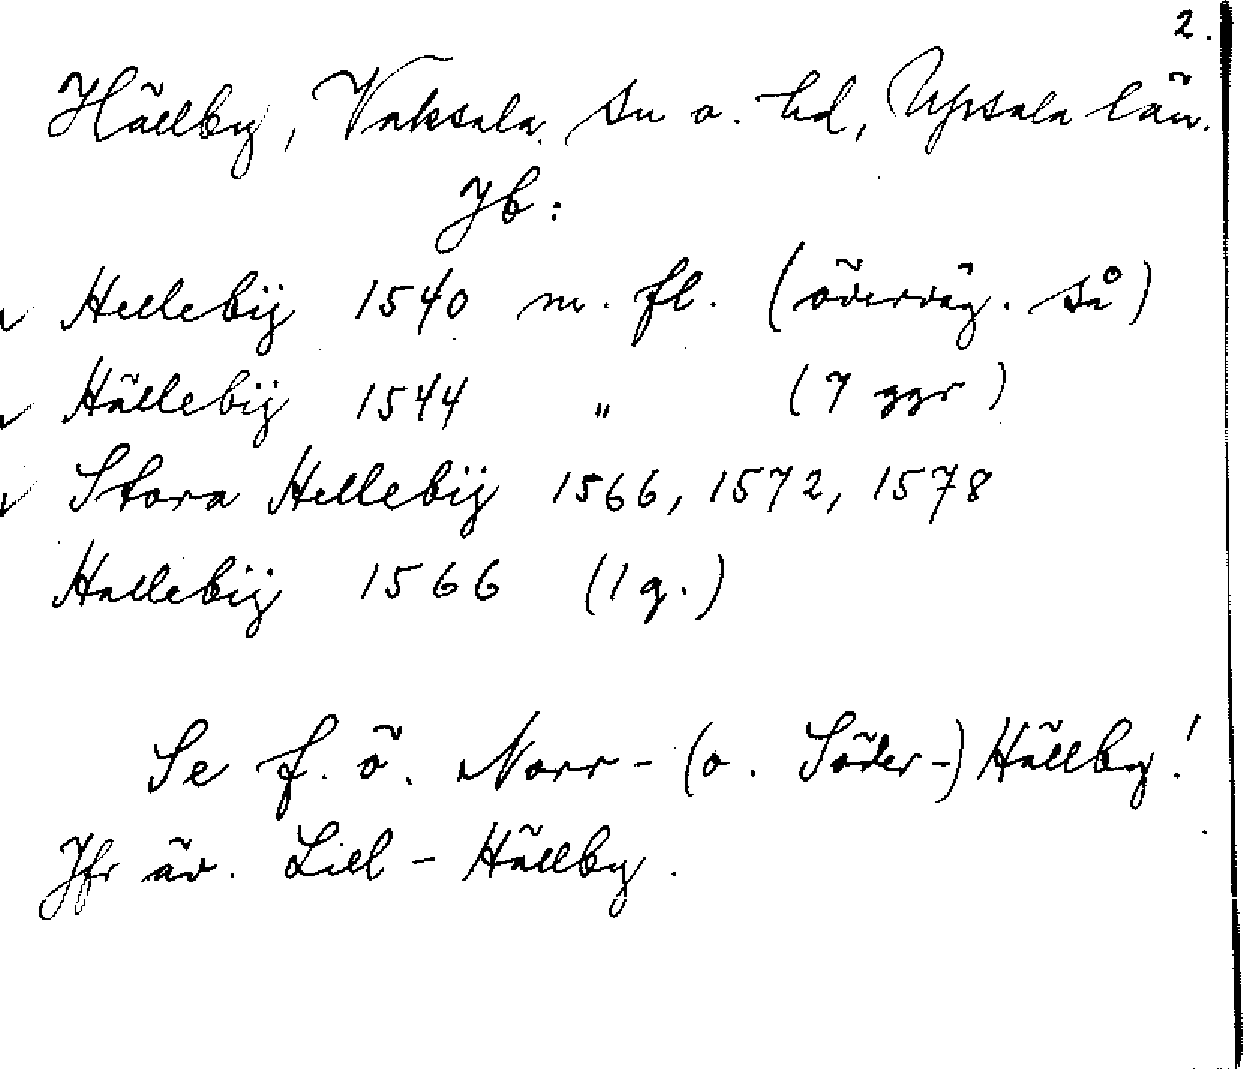 2.
Hällby, Vaksala sn o. hd, Upsala län.
Jb:
Hellebÿ 1540 m. fl. (överväg. så)
Hällebÿ 1544 " (7 ggr)
Stora Hellebÿ 1566, 1572, 1578
Hallebÿ 1566 (1 g.)
Se f. ö. Norr- (o. Söder-) Hällby!
Jfr äv. Lill-Hällby.